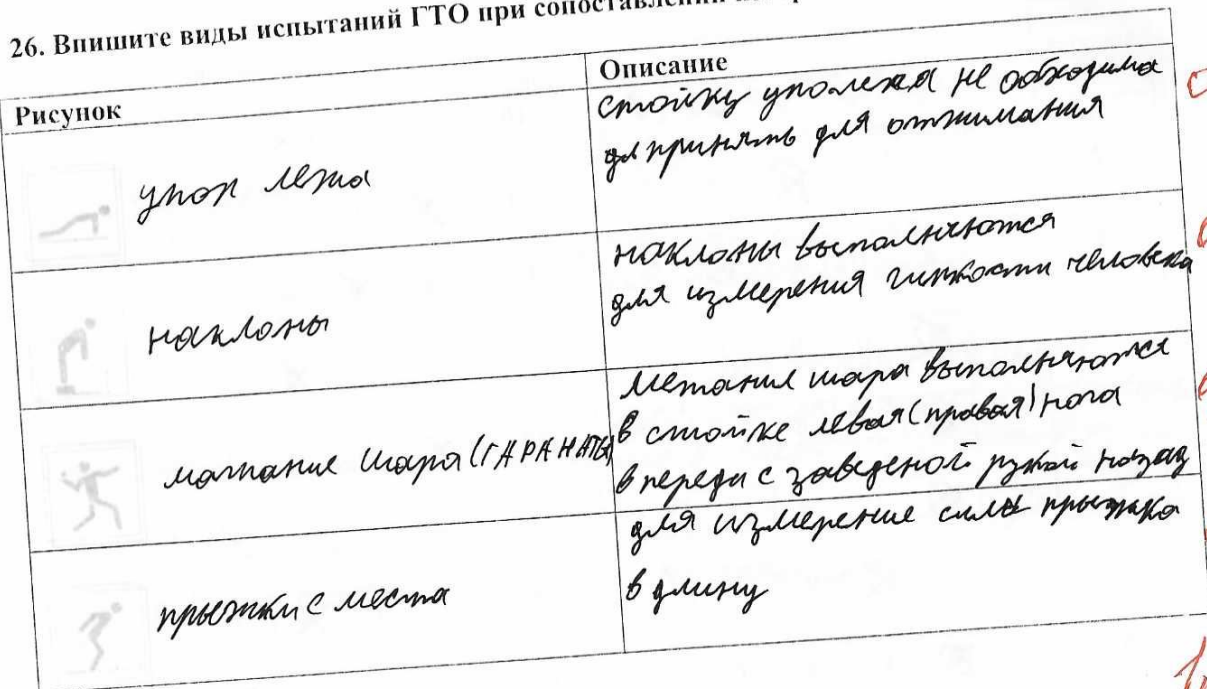 26. Впишите виды испытаний ГТО при сопоставлении
Рисунок
Описание
упор лежа
стойку упол лежа не обходима
принять для отжимания
наклоны
наклоны выполнются
для измерения гибкости человека
матание шара (ГАРАНАТЫ)
метание шара выполняются
в стойке левая (правая) нога
впереди с заведеной рукой назад
прыжки с места
для измерение силы прыжка
в длину